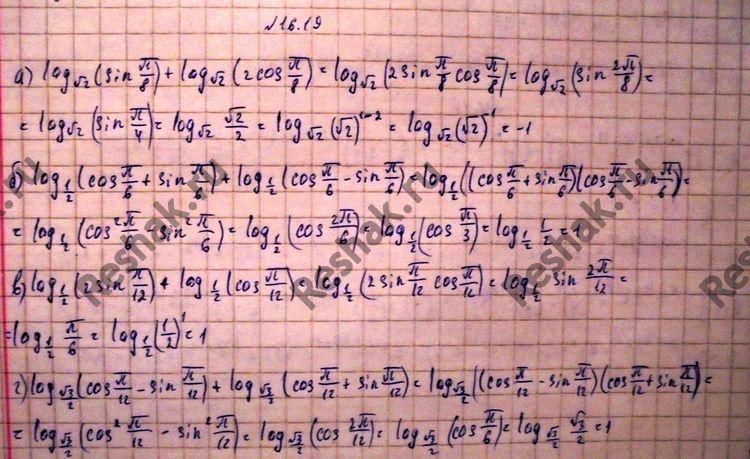 №16.19
а) log_√2 (sin π/8) + log_√2 (2cos π/8) = log_√2 (2sin π/8 cos π/8) = log_√2 (sin 2π/8) =
= log_√2 (sin π/4) = log_√2 √2/2 = log_√2 (√2)^(1-2) = log_√2 (√2)^-1 = -1
б) log_1/2 (cos π/6 + sin π/6) + log_1/2 (cos π/6 - sin π/6) = log_1/2 ((cos π/6 + sin π/6)(cos π/6 - sin π/6)) =
= log_1/2 (cos² π/6 - sin² π/6) = log_1/2 (cos 2π/6) = log_1/2 (cos π/3) = log_1/2 1/2 = 1
в) log_1/2 (2sin π/12) + log_1/2 (cos π/12) = log_1/2 (2sin π/12 cos π/12) = log_1/2 sin 2π/12 =
= log_1/2 π/6 = log_1/2 (1/2)^1 = 1
г) log_√3/2 (cos π/12 - sin π/12) + log_√3/2 (cos π/12 + sin π/12) = log_√3/2 ((cos π/12 - sin π/12)(cos π/12 + sin π/12)) =
= log_√3/2 (cos² π/12 - sin² π/12) = log_√3/2 (cos 2π/12) = log_√3/2 (cos π/6) = log_√3/2 √3/2 = 1
Reshak.ru
Reshak.ru
Reshak.ru